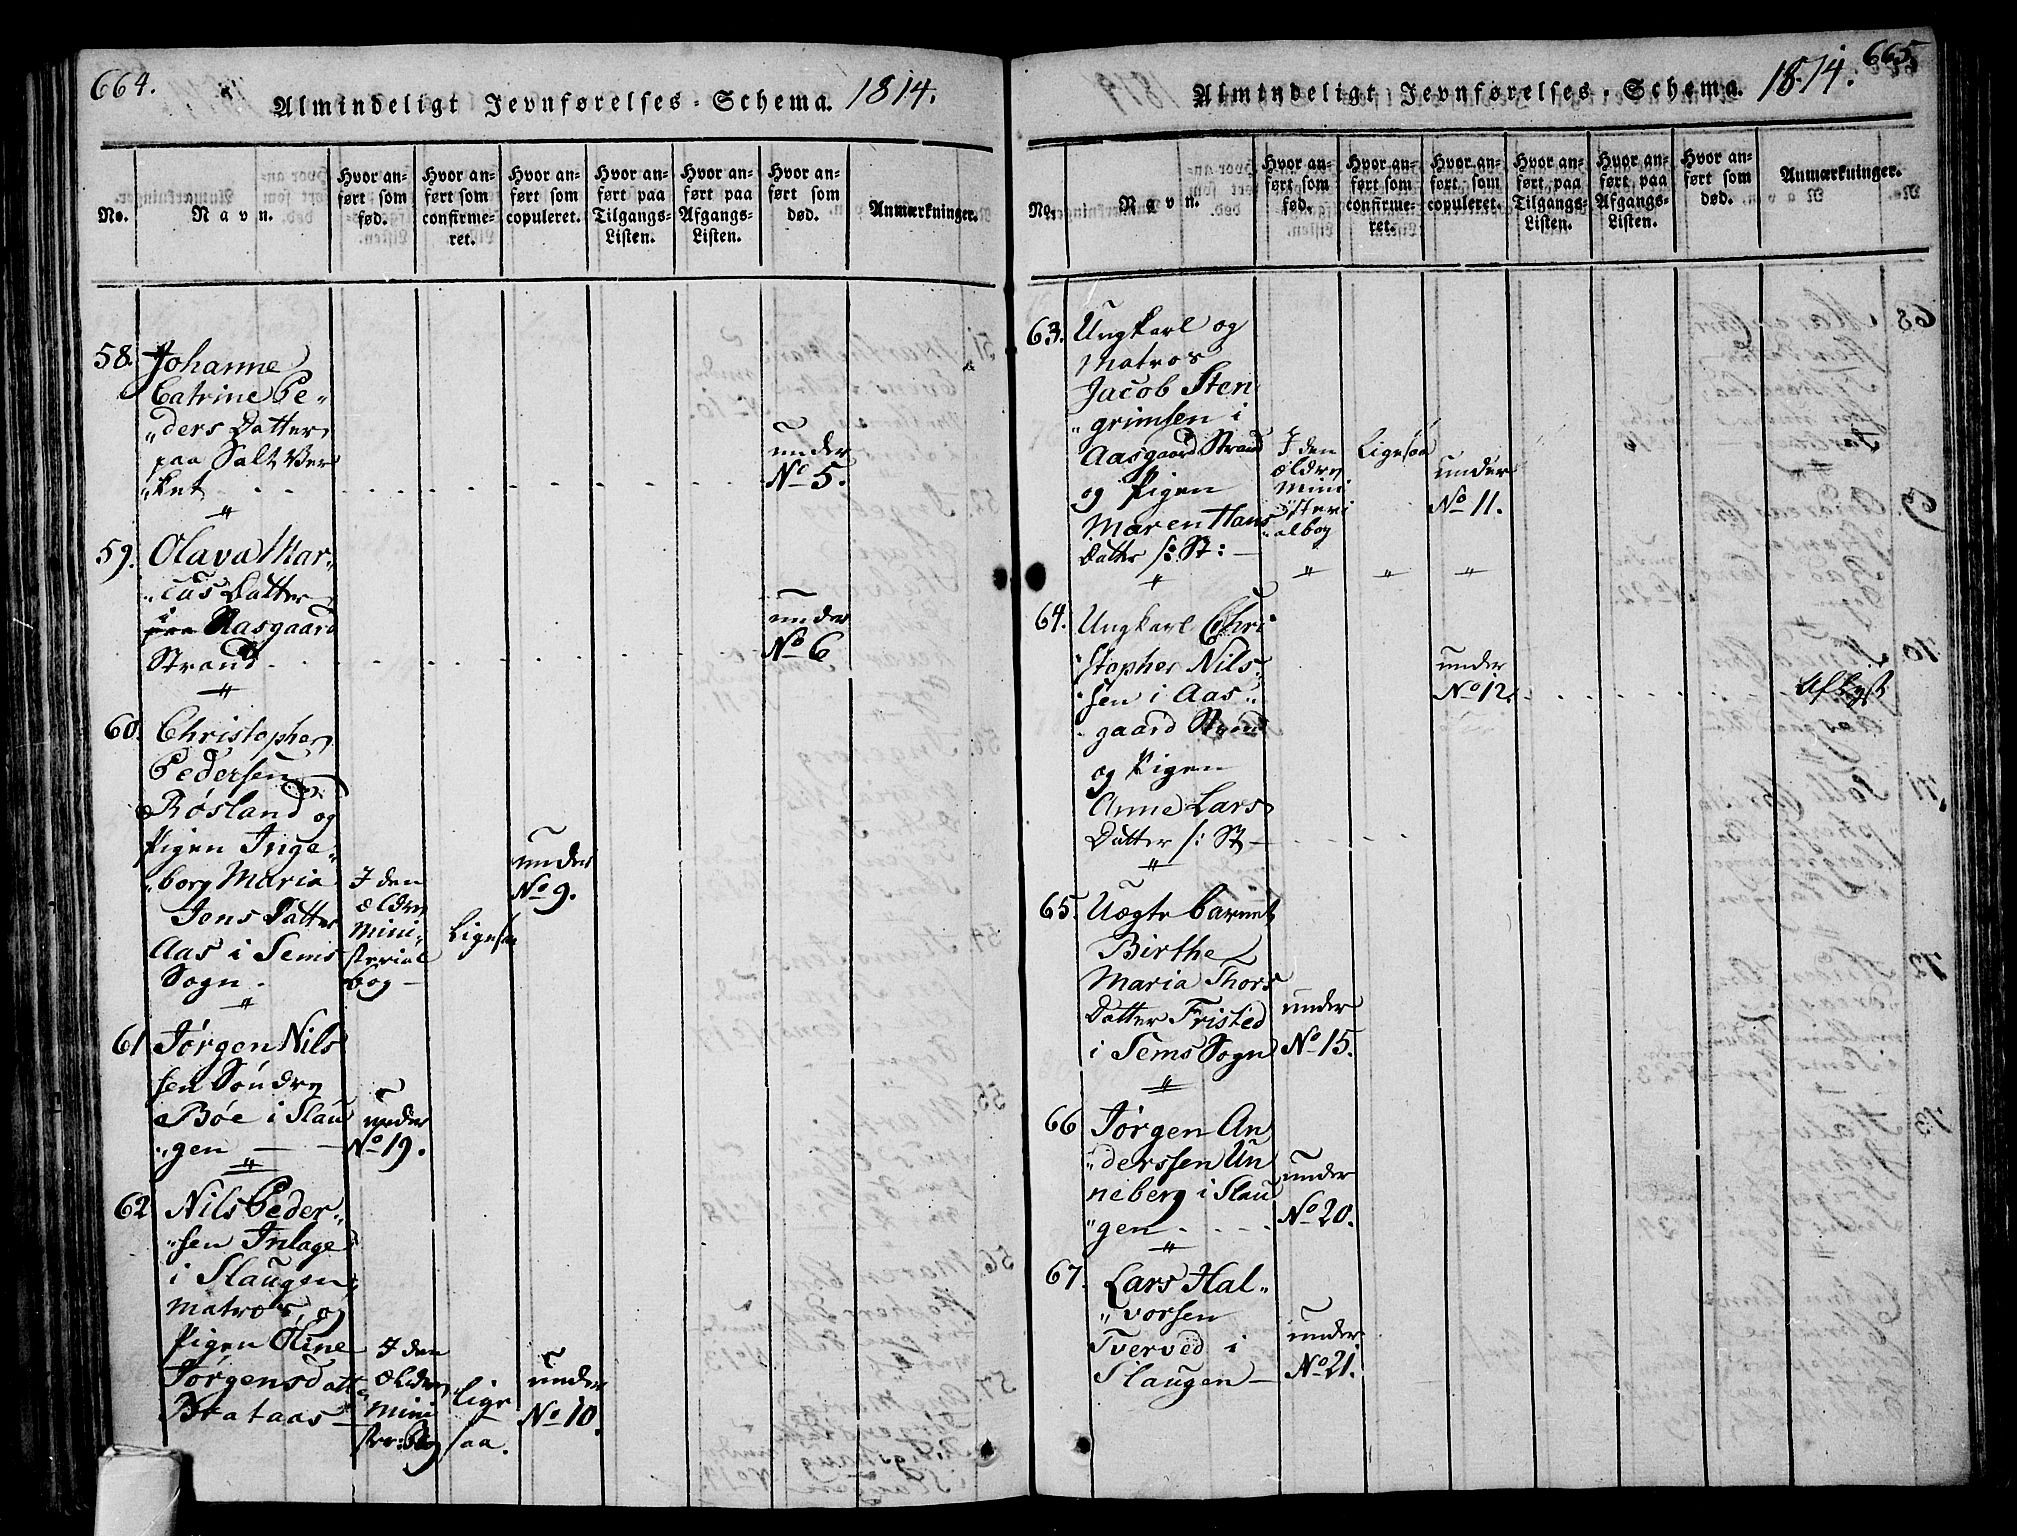 664.
Almindeligt Jevnførelses-Schema. 1814.
No.
Navn.
Hvor anført som fød.
Hvor anført som confirmeret.
Hvor anført som copuleret.
Hvor anført paa Tilgangs-Listen.
Hvor anført paa Afgangs-Listen.
Hvor anført som død.
Anmærkninger.
58. Johanne
Catrine Pe-
"ders Datter
paa Salt Ver
"ket
under
No 5.
59. Olava Mar-
"cus Datter
i Aasgaard
Strand
under
No 6
60. Christopher
Pedersen
Røsland og
Pigen Inge-
"borg Maria
Jens Datter
Aas i Sems
Sogn.
I den
ældre
Mini-
sterial
bog
Ligesaa
under
No 9.
61 Jørgen Nils
sen Søndre
Bøe i Slau
"gen
under
No 19.
62 Nils Peder-
"sen Inlage
i Slaugen
Matros, og
Pigen Oline
Jørgensdatter
Brataas
I den
Ældre
Mini
ster: Bog
lige
saa.
under
No 10.
665.
Almindeligt Jevnførelses-Schema. 1814.
No.
Navn.
Hvor anført som fød.
Hvor anført som confirmeret.
Hvor anført som copuleret.
Hvor anført paa Tilgangs-Listen.
Hvor anført paa Afgangs-Listen.
Hvor anført som død.
Anmærkninger.
63. Ungkarl og
Matros
Jacob Sten
"grimsen i
Aasgaard Strand
og Pigen
Maren Hans
Datter /: St:
I den
ældre
Mini
steri
albog
Ligesaa
under
No 11.
64. Ungkarl Chri
"stopher Nils-
"sen i Aas-
"gaard Strand
og Pigen
Anne Lars
Datter /: St
under
No 12.
65. Uægte barnet
Birthe
Maria Thors
Datter Fristed
i Sems Sogn
under
No 15.
66 Jørgen An
"derssen Un
neberg i Slau
"gen
under
No 20.
67. Lars Hal-
"vorsen
Tverved i
Slaugen
under
No 21.